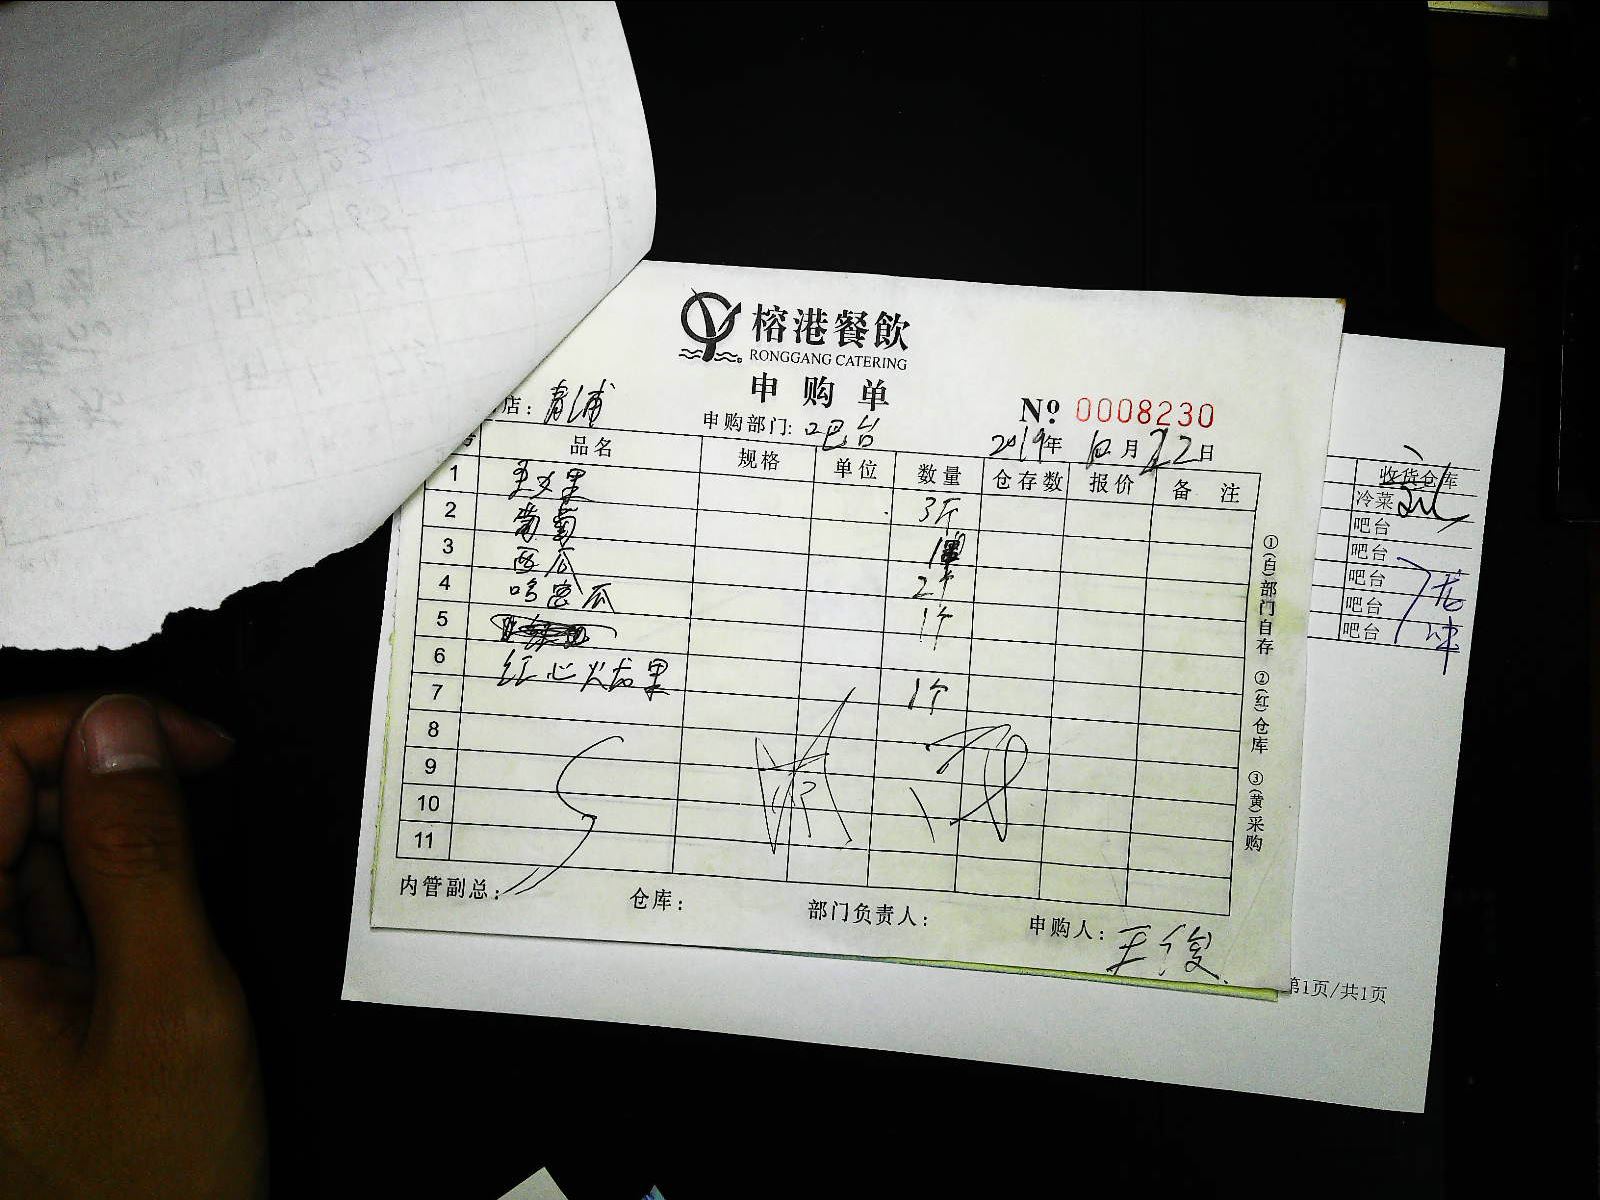 榕港餐飲
RONGGANG CATERING
申购单
店: 青浦
申购部门: 吧台
№ 0008230
2019年 10月 22日
品名 规格 单位 数量 仓存数 报价 备 注
1 3斤
2 葡萄
3 西瓜 2个
4 哈密瓜 1个
5
6 红心火龙果 1个
7
8
9
10
11
内管副总: 仓库: 部门负责人: 申购人: 王俊
①(白)部门自存 ②(红)仓库 ③(黄)采购
收货仓库
冷菜
吧台
吧台
吧台
吧台
吧台
第1页/共1页